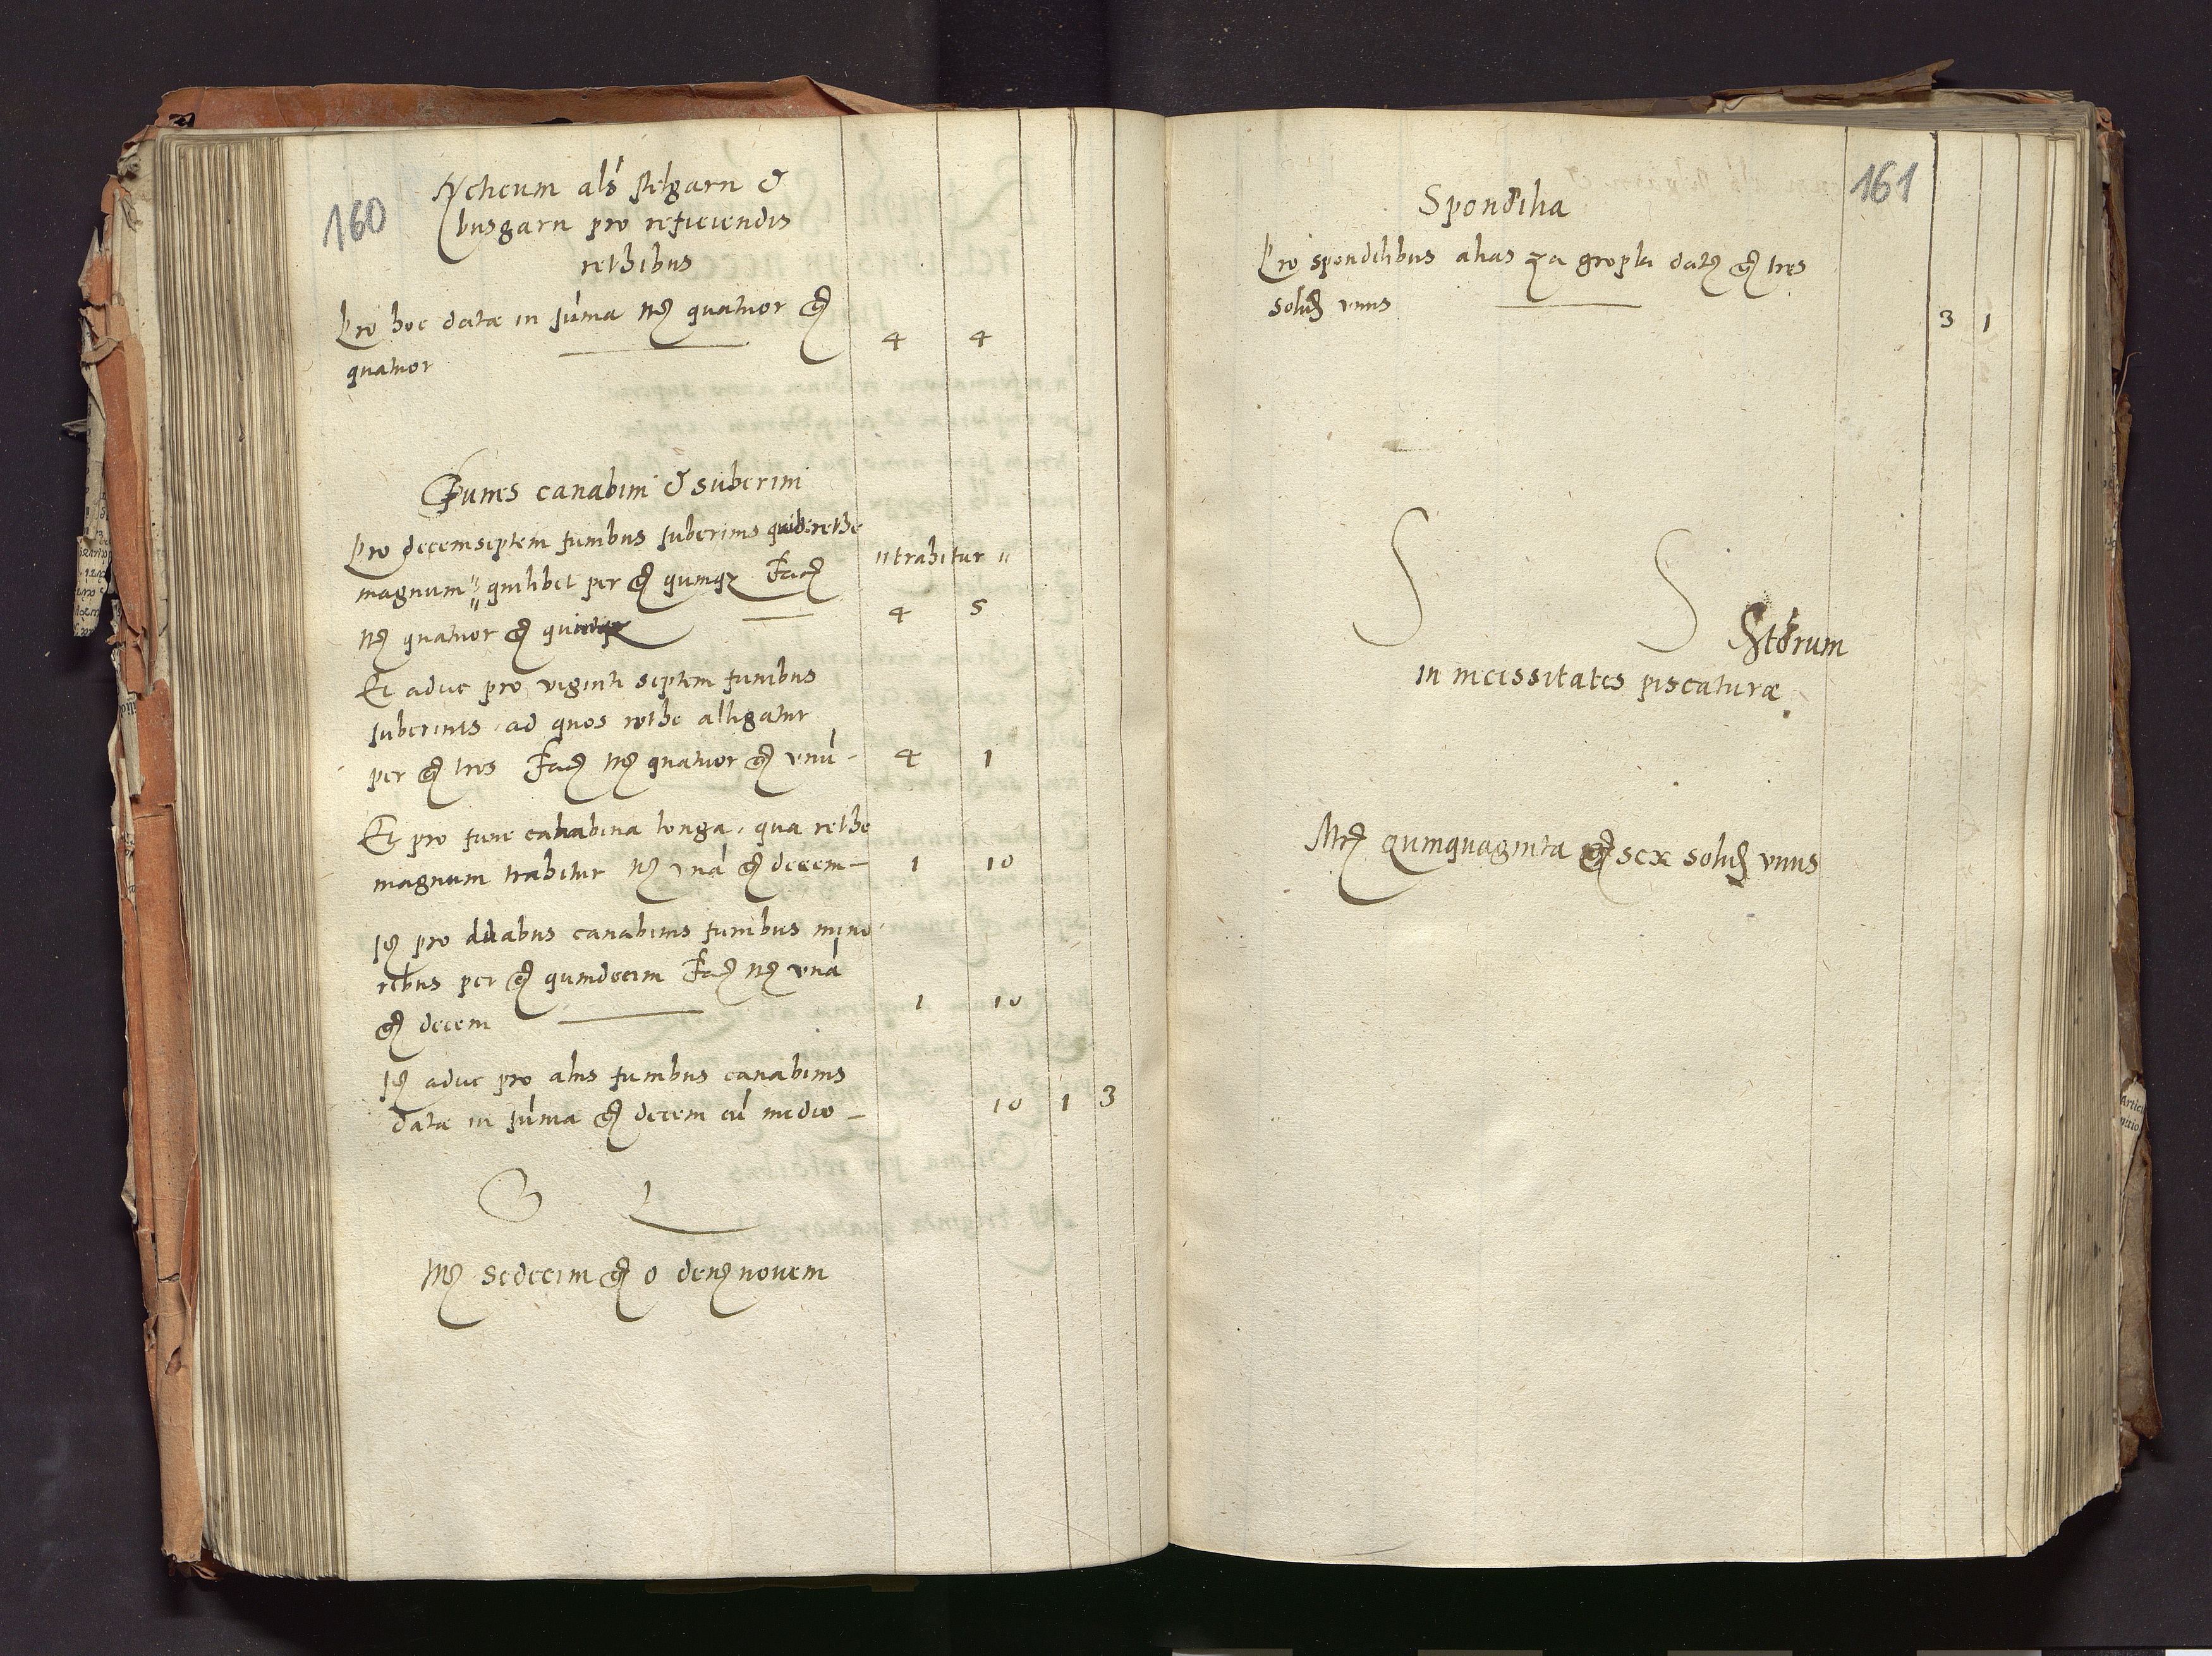 160
Netheum als stelgarn &
busgarn pro reficiendis
rethibus
Pro hoc datae in sūma mrz quatuor gr
quatuor 4 4
Funes canabini & suberini
Pro decemseptem funibus suberinis quib: rethe
magnum "" quilibet per gr quinqz Facz "trahitur"
mrz quatuor gr quinqz 4 5
Et aduc pro viginti septem funibus
suberinis, ad quos rethe alligatur
per gr tres Facz mrz quatuor gr vnū - 4 1
Et pro fune canabina longa, qua rethe
magnum trahitur mrz vnā gr decem 1 10
Itz pro duabus canabinis funibus mino
ribus per gr quindecim Facz mrz vnā
gr decem 1 10
Itz aduc pro aliis funibus canabinis
datae in sūma gr decem cū medio 10 1 3
Mrz sedecim gr 0 denz novem
161
Spondilia
Pro spondilibus alias za gropki datz gr tres
solidz vnus 3 1
S S
in necessitates piscaturæ
Mrz quinquaginta gr sex solidz vnus